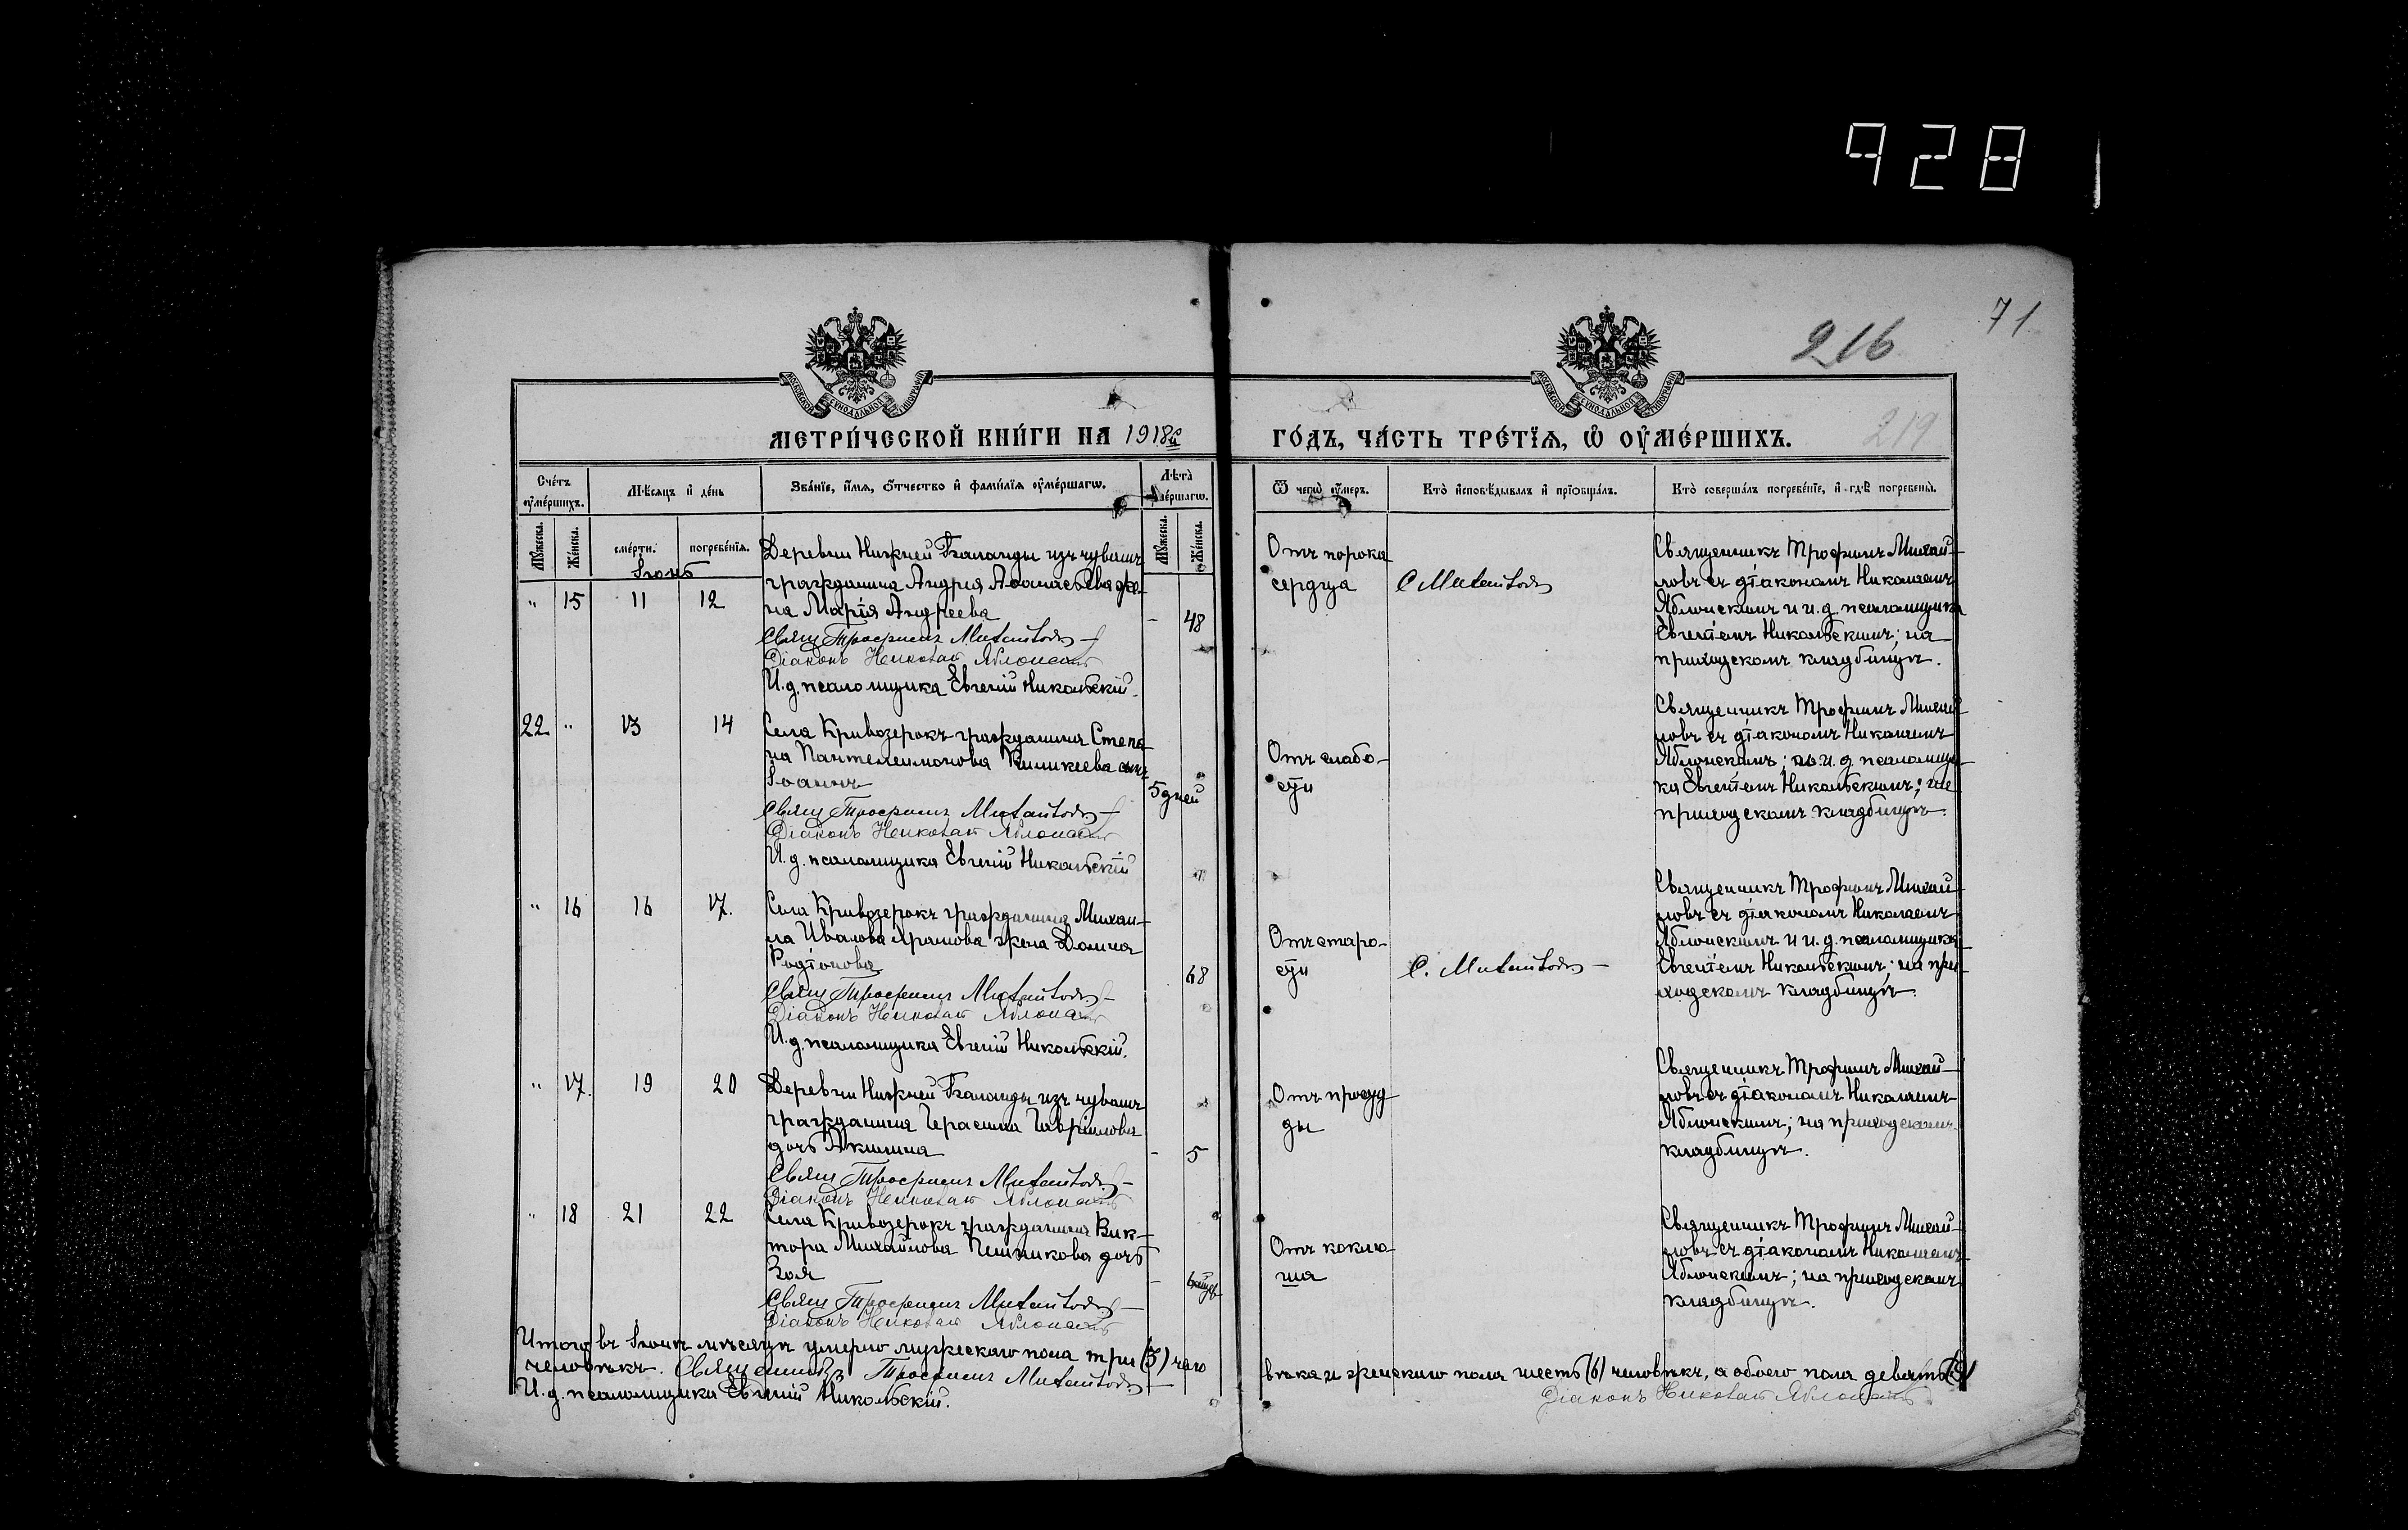 928
71
216
219
МОСКОВСКОЙ СѴНОДАЛЬНОЙ ТИПОГРАФІИ
МОСКОВСКОЙ СѴНОДАЛЬНОЙ ТИПОГРАФІИ
МЕТРИ́ЧЕСКОЙ КНИ́ГИ НА 1918й
ГО́ДЪ, ЧА́СТЬ ТРЕ́ТІѦ, Ѽ ОУ҆МЕ́РШИХЪ.
Сче́тъ оу҆ме́ршихъ.
Мѣ́сѧцъ и҆ де́нь
Зва́нїе, и҆́мѧ, ѻ҆́тчество и҆ фами́лїѧ оу҆ме́ршагѡ.
Лѣта̀ оу҆ме́ршагѡ.
Ѿ чегѡ̀ оу҆́меръ.
Кто̀ и҆сповѣ́дывалъ и҆ прїобща́лъ.
Кто̀ соверша́лъ погребе́нїе, и҆ гдѣ̀ погребены̀.
Мꙋ́жеска.
Же́нска.
сме́рти.
погребе́нїѧ.
Мꙋ́жеска.
Же́нска.
Іюнь
" 15 11 12
Деревни Нижней Баланды изъ чувашъ
гражданина Андрея Аѳанасьева же-
на Марія Андреева
Свящ Трофимъ Михайловъ
Діаконъ Николай Яблонскій
И. д. псаломщика Евгеній Никольскій.
- 48
Отъ порока
сердца
С Михайловъ
Священникъ Трофимъ Михай-
ловъ съ діакономъ Николаемъ
Яблонскимъ и и. д. псаломщика
Евгеніемъ Никольскимъ; на
приходскомъ кладбищѣ.
22 " 13 14
Села Кривозерокъ гражданина Степа-
на Пантелеимонова Киликеева сынъ
Іоаннъ
Свящ Трофимъ Михайловъ
Діаконъ Николай Яблонскій
И. д. псаломщика Евгеній Никольскій
5 дней
Отъ слабо-
сти
Священникъ Трофимъ Михай-
ловъ съ діакономъ Николаемъ
Яблонскимъ; и. д. псаломщи-
ка Евгеніемъ Никольскимъ; на
приходскомъ кладбищѣ.
" 16 16 17.
Села Кривозерокъ гражданина Михаи-
ла Иванова жена Домна
Родіонова
Свящ Трофимъ Михайловъ
Діаконъ Николай Яблонскій
И. д. псаломщика Евгеній Никольскій.
68
Отъ старо-
сти
С. Михайловъ
Священникъ Трофимъ Михай-
ловъ съ діакономъ Николаемъ
Яблонскимъ и и. д. псаломщика
Евгеніемъ Никольскимъ; на при-
ходскомъ кладбищѣ.
" 17. 19 20
Деревни Нижней Баланды изъ чувашъ
гражданина Герасима Гавріилова
дочь Акилина
Свящ Трофимъ Михайловъ
Діаконъ Николай Яблонскій
- 5
Отъ простуд
ды
Священникъ Трофимъ Михай-
ловъ съ діакономъ Николаемъ
Яблонскимъ; на приходскомъ
кладбищѣ.
" 18 21 22
Села Кривозерокъ гражданина Вик-
тора Михайлова дочь
Зоя
Свящ Трофимъ Михайловъ
Діаконъ Николай Яблонскій
Отъ коклю-
ша
Священникъ Трофимъ Михай-
ловъ съ діакономъ Николаемъ
Яблонскимъ; на приходскомъ
кладбищѣ.
Итого въ Іюнѣ мѣсяцѣ умерло мужескаго пола три (3) чело
вѣка и женскаго пола шесть (6) человѣкъ, а обоего пола девять (9)
человѣкъ. Священникъ Трофимъ Михайловъ
Діаконъ Николай Яблонскій
И. д. псаломщика Евгеній Никольскій.